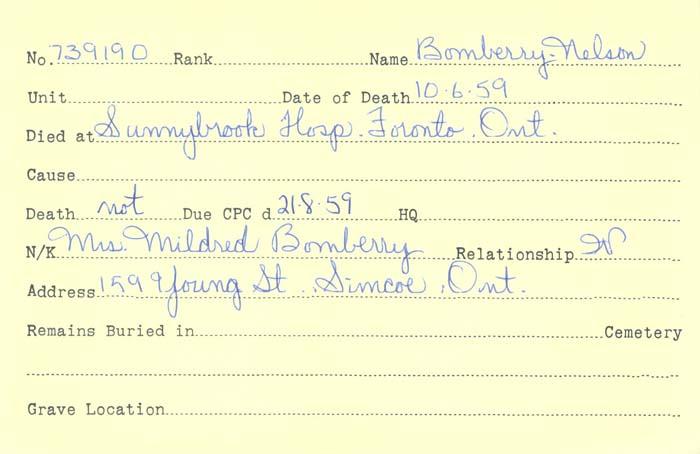 No. 739190 Rank Name Bomberry, Nelson
Unit Date of Death 10.6.59
Died at Sunnybrook Hosp. Toronto, Ont.
Cause
Death not Due CPC d 21.8.59 HQ
N/K Mrs. Mildred Bomberry Relationship W
Address 159 Young St., Simcoe, Ont.
Remains Buried in Cemetery
Grave Location